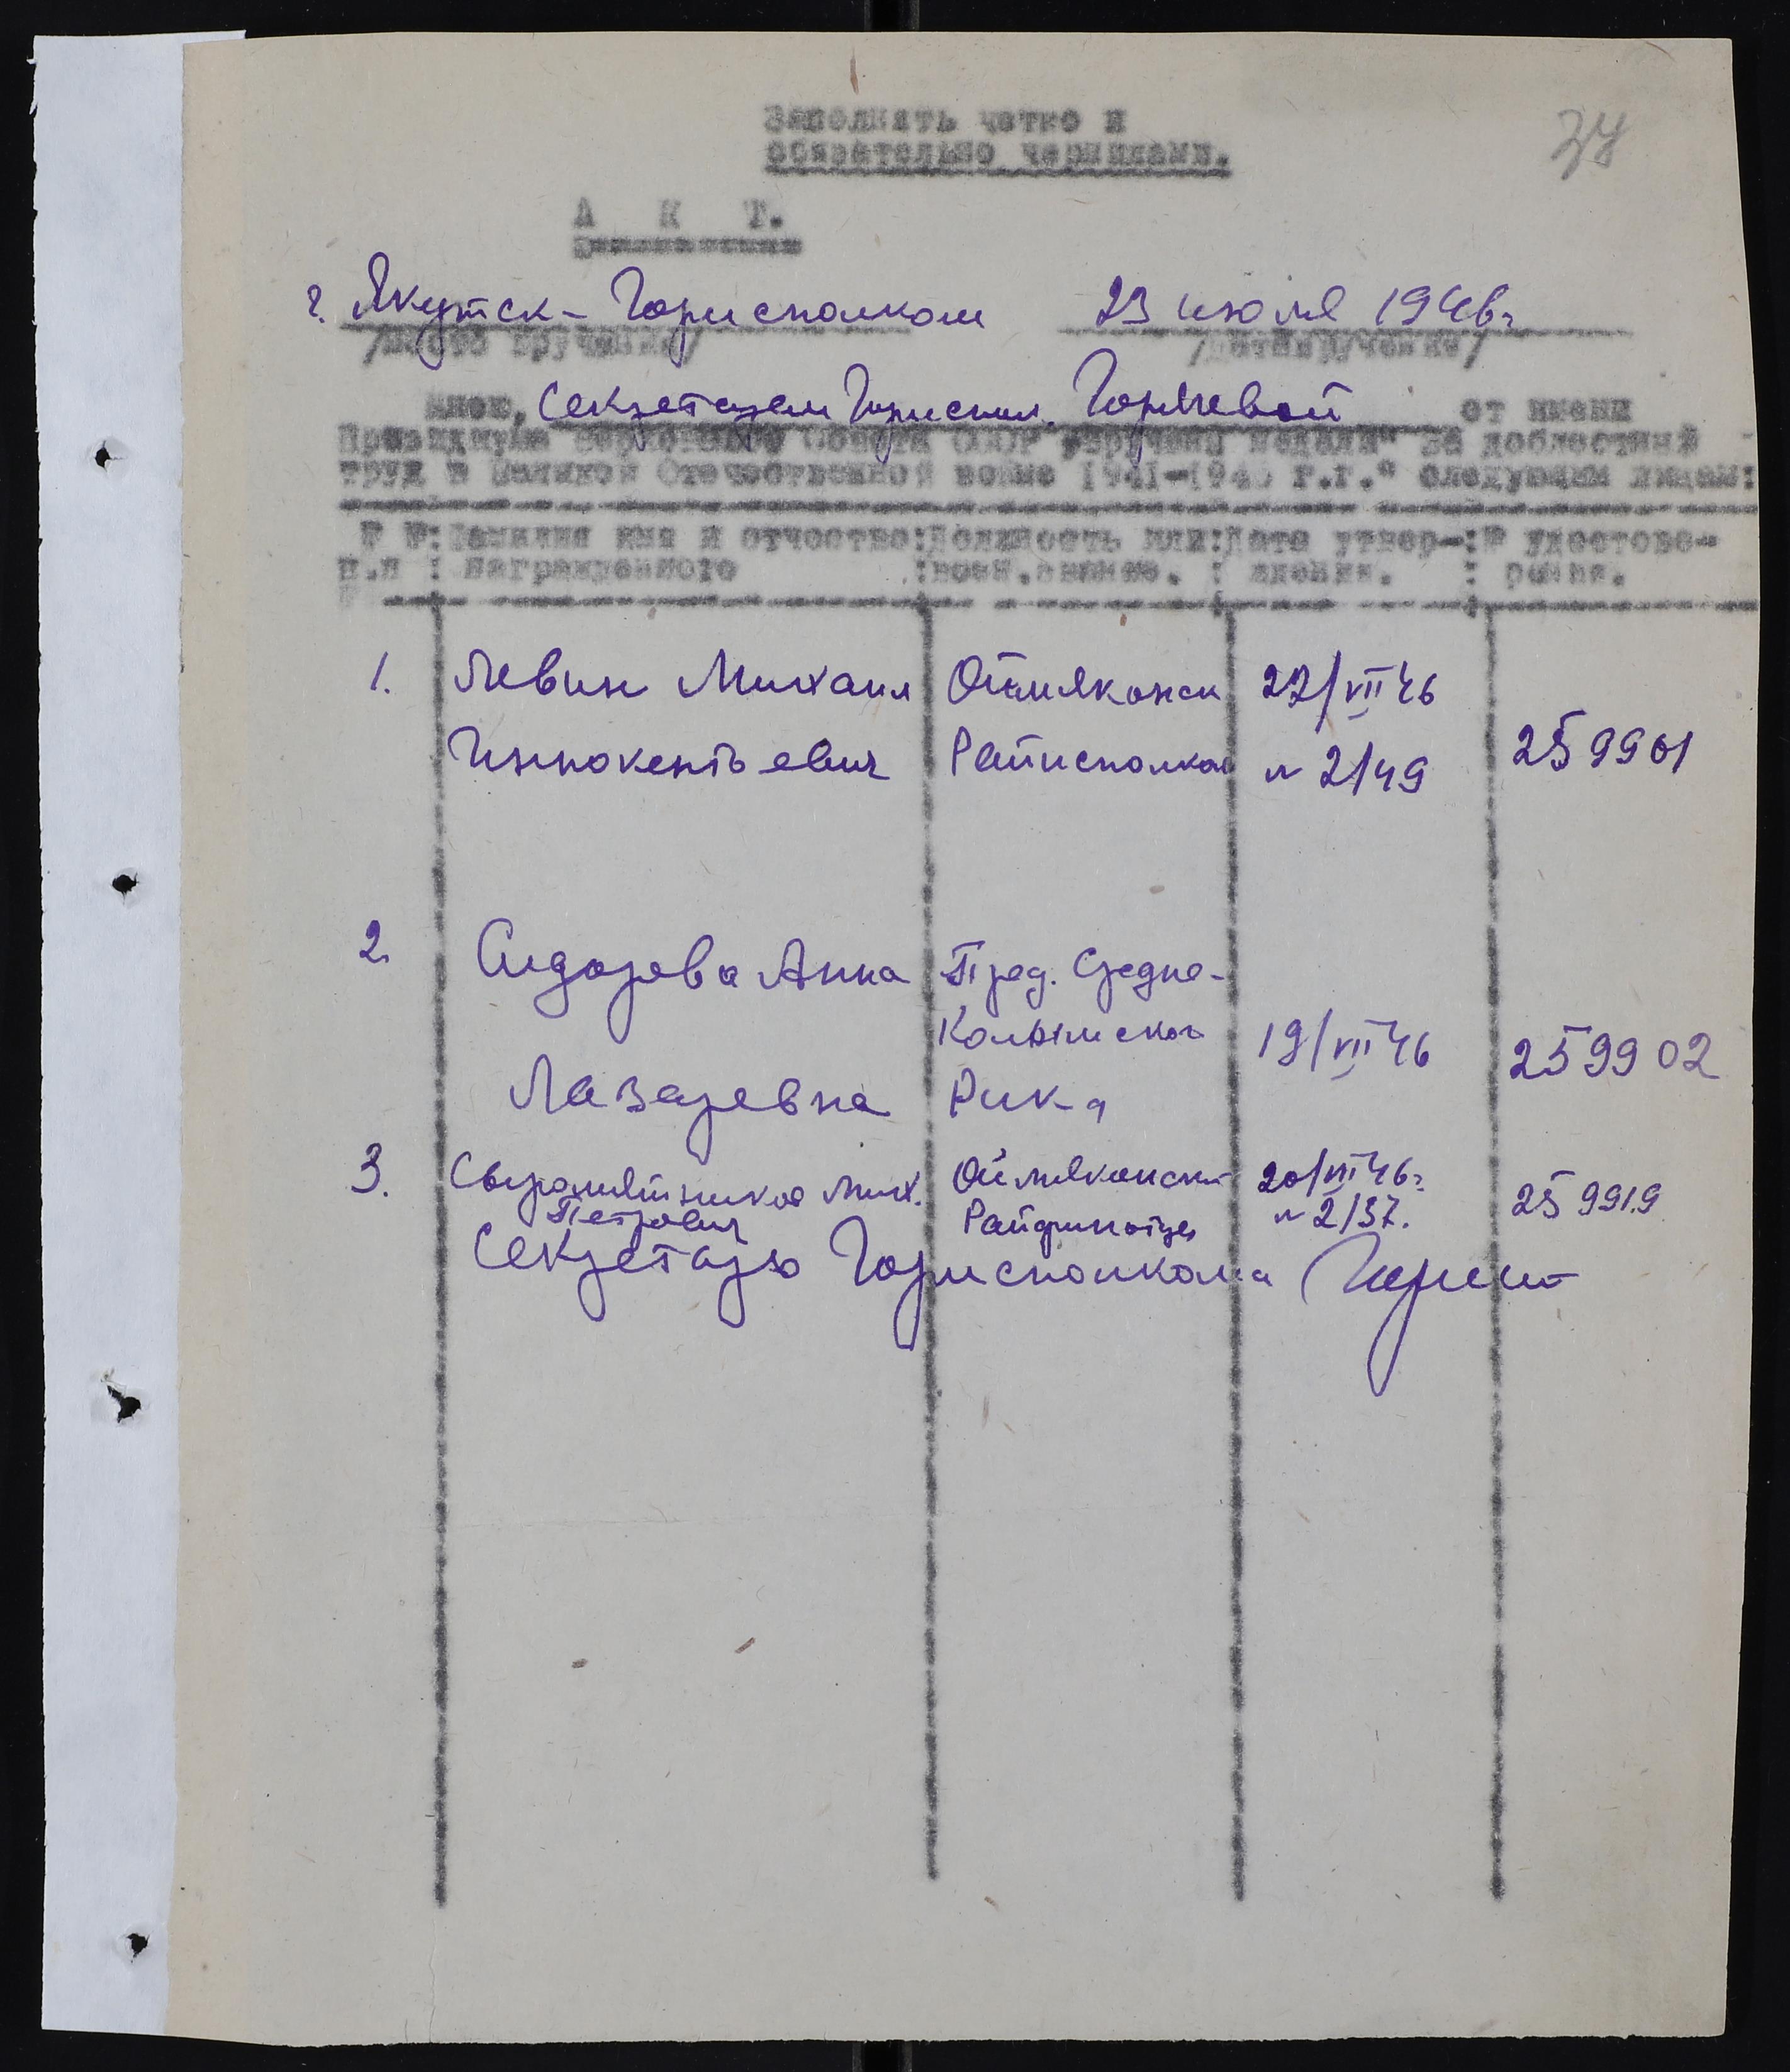 Заполнять четко и
обязательно чернилами.
А К Т.
г. Якутск - Горисполком 23 июля 1946г
/место вручения/ /дата вручения/
Мною, Секретарем Горисполк. Горячевой от имени
Президиума Верховного Совета СССР вручены медали "За доблестный
труд в Великой Отечественной войне 1941-1945 г.г." следующим лицам:
№ №:Фамилия имя и отчество:Должность или:Дата утвер-:№ удостове-
п.п : награжденного :воен.звание. : ждения. : рения.
1. Левин Михаил Оймяконск 22/VII 46
Иннокентьевич Райисполком № 2/49 259901
2. Сидорова Анна Пред. Средне-
Колымског 19/VII 46 259902
Лазаревна Рик-а
3. Сыромятников Мих. Оймяконский 20/VII 46г 259919
Петрович Райфинотдел № 2/37.
Секретарь Горисполкома